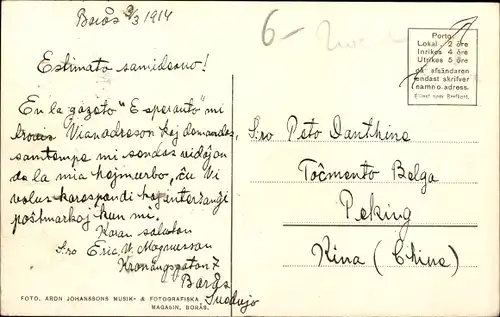 Borås 9/3 1914
Estimata samideano!
En la gazeto "Esperanto" mi
trovis Vian adreson kaj demandas,
samtempe mi sendas vidaĵon
de la mia hejmurbo, ĉu Vi
volus korespondi kaj interŝanĝi
poŝtmarkoj kun mi.
Koran saluton
S-ro Eric W. Magnusson
Kronängsgatan 7
Borås
Suedujo
FOTO. ARON JOHANSSONS MUSIK- & FOTOGRAFISKA
MAGASIN, BORÅS.
6-
Porto:
Lokal. 2 öre
Inrikes 4 öre
Utrikes 5 öre
då afsändaren
endast skrifver
namn o. adress.
Eljest som Brefkort.
S-ro Peto Danthine
Toĉmento Belga
Peking
Kina (Chine)